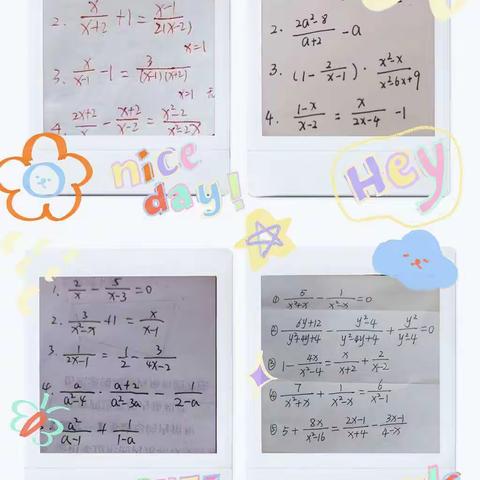 2. x/(x+2) + 1 = (x-1)/(2(x-2))
x=1
3. x/(x-1) - 1 = 3/((x-1)(x+2))
x=1 无
4. (2x+2)/x - (x+2)/(x-2) = (x²-2)/(x²-2x)
2. (2a²-8)/(a+2) - a
3. (1 - 2/(x-1)) · (x²-x)/(x²-6x+9)
4. (1-x)/(x-2) = x/(2x-4) - 1
nice
day!
Hey
1. 2/x - 5/(x-3) = 0
2. 3/(x²-x) + 1 = x/(x-1)
3. 1/(2x-1) = 1/2 - 3/(4x-2)
4. a/(a²-4) · (a+2)/(a²-3a) - 1/(2-a)
a²/(a-1) + 1/(1-a)
① 5/(x²+x) - 1/(x²-x) = 0
② (6y+12)/(y²+4y+4) - (y²-4)/(y²-4y+4) + y²/(y²-4) = 0
③ 1 - 4x/(x²-4) = x/(x+2) + 2/(x-2)
④ 7/(x²+x) + 1/(x²-x) = 6/(x²-1)
⑤ 5 + 8x/(x²-16) = (2x-1)/(x+4) - (3x-1)/(4-x)